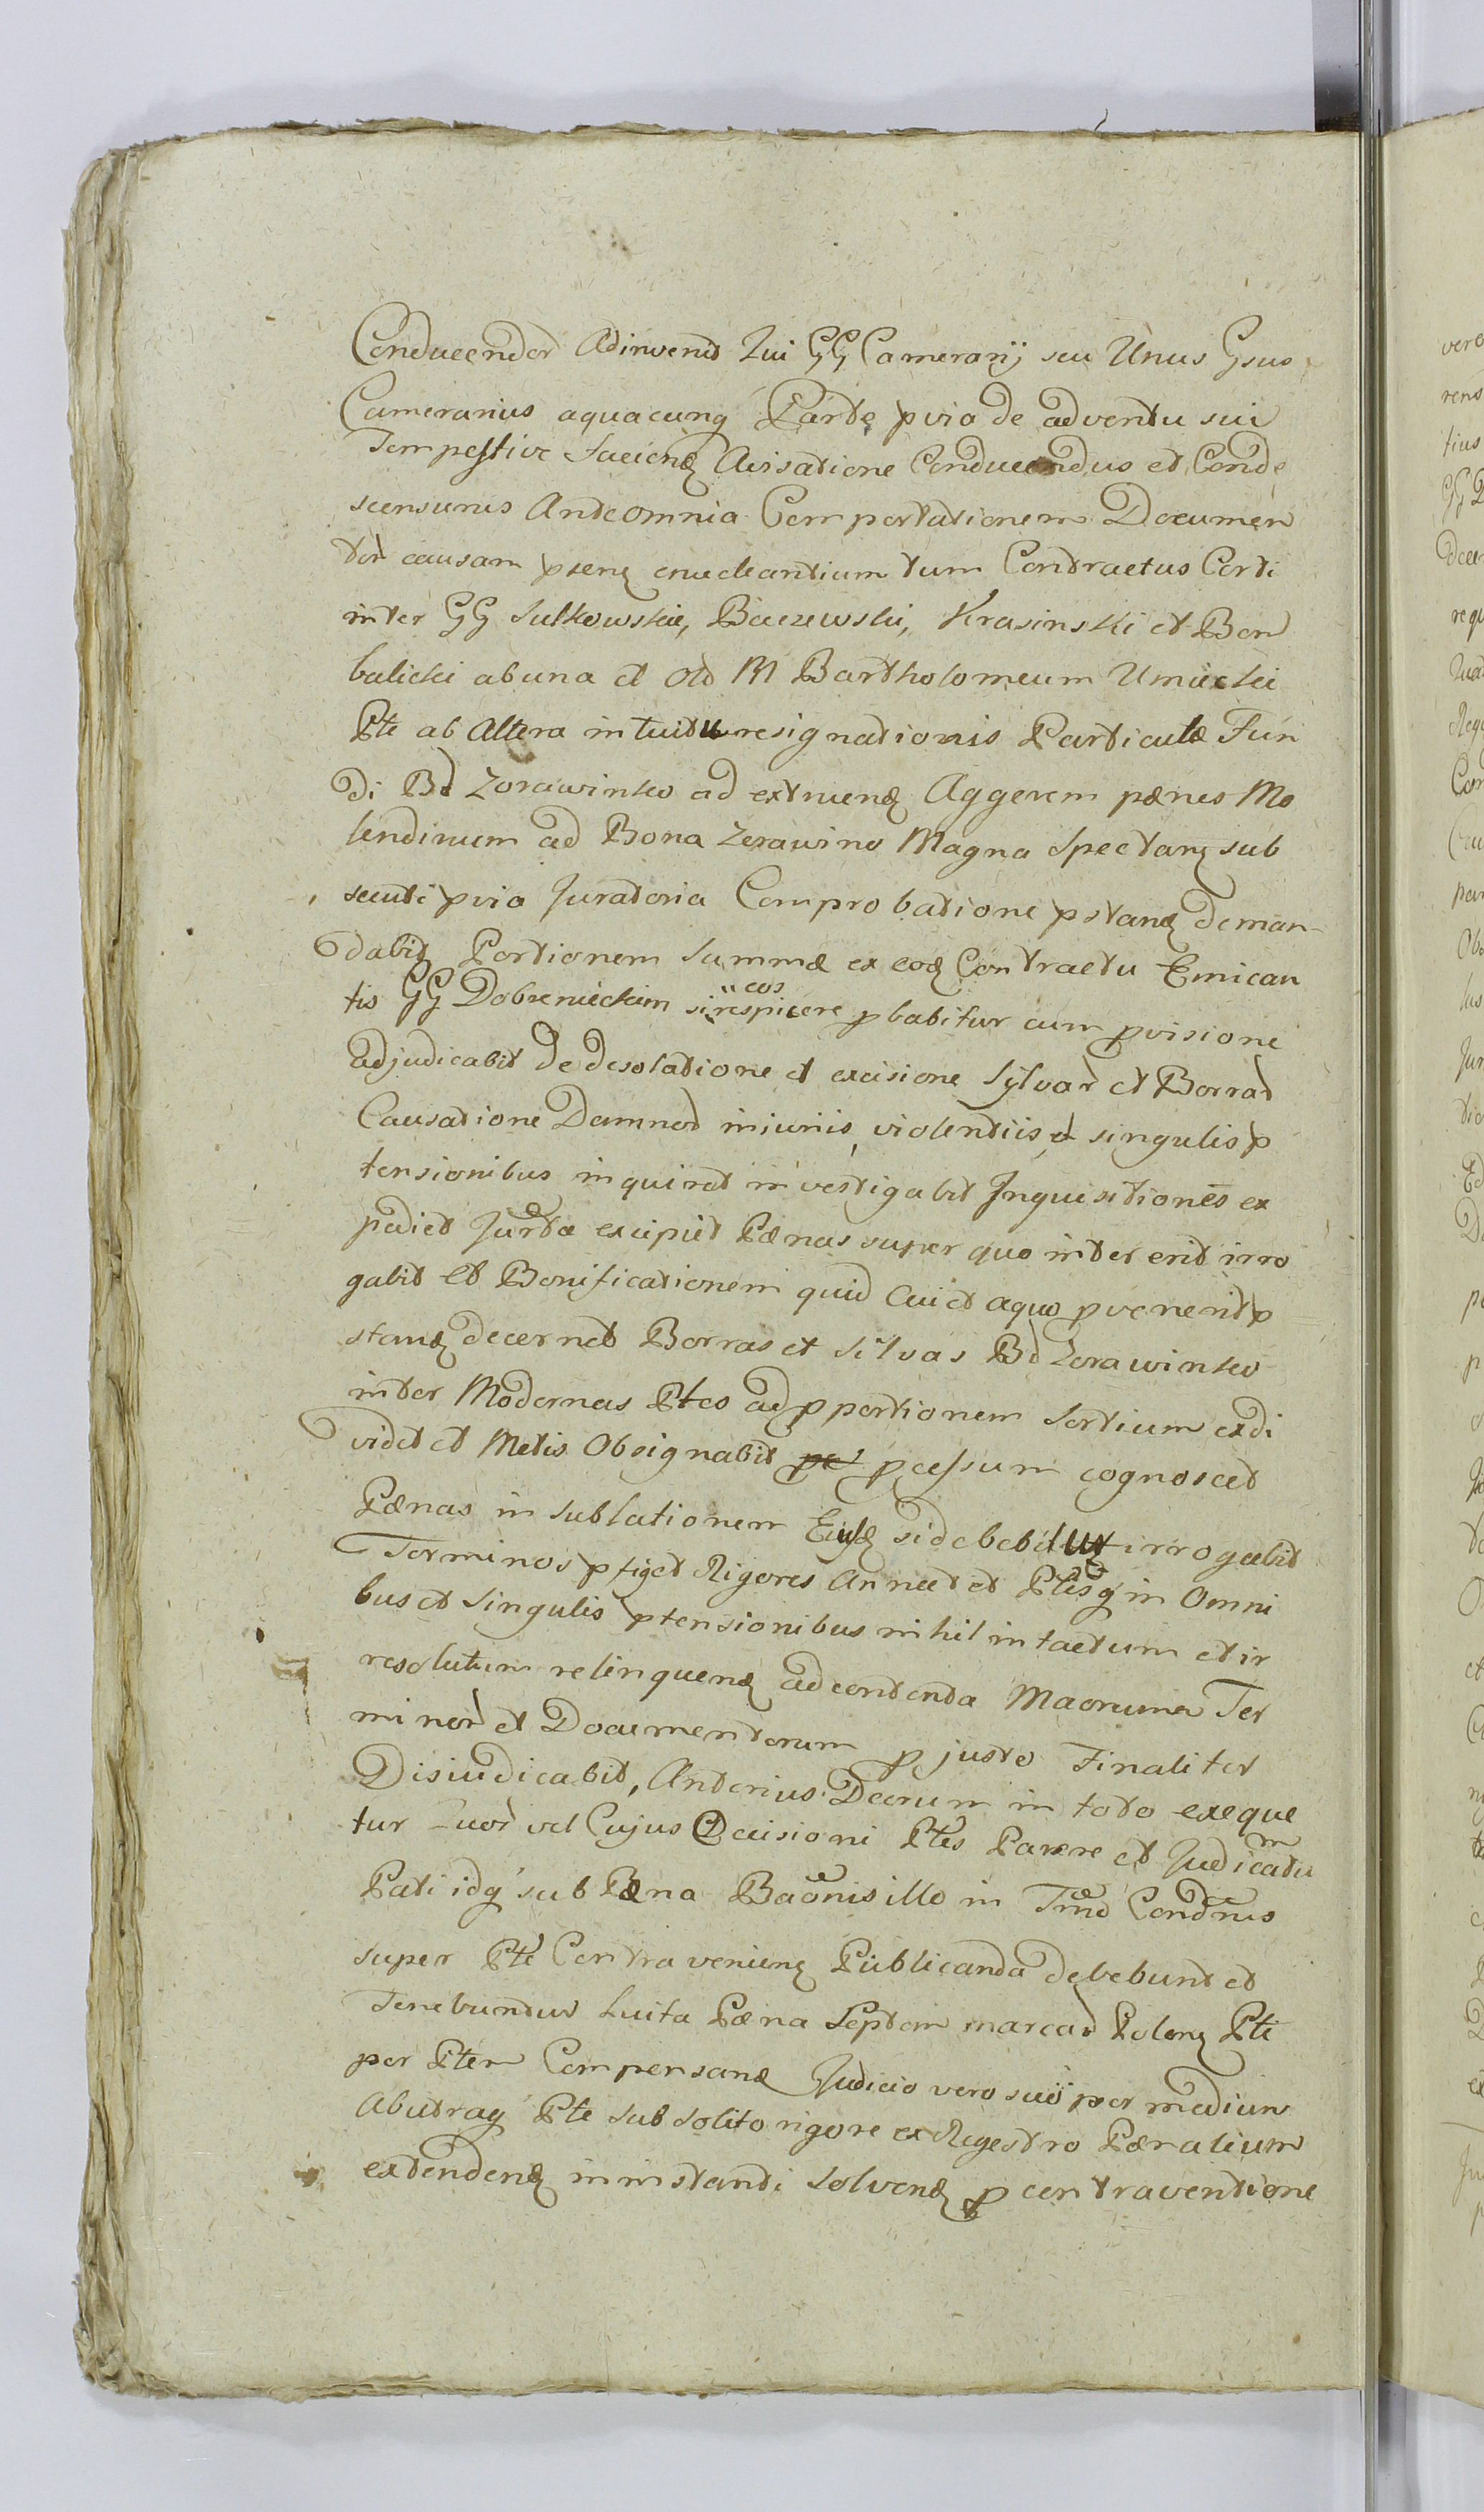 Conducendor Adinvenit Qui GG Camerarij seu Unus Gsus
Camerarius aquacunq Parte pvia de adventu sui
Tempestive faciend Avisatione Conducendus et Conde
scensurus Anteomnia Comportationem Documen
tor causam psenq enucleantium tum Contractus Certi
inter GG Sulkowskie, Baczewski, Krasinski et Bon
balicki abuna et Old M Bartholomeum Umiecki
Pte ab Altera intuitu resignationis Particulæ Fun
di Bd Zorawinko ad extruend Aggerem pænes Mo
lendinum ad Bona Zerawino Magna Spectanq sub
secuti pvia Juratoria Comprobatione pstand deman
dabit Portionem Summæ ex eod Contractu Emican
tis GG Dobrenieckim si eos respicere pbabitur cum pvisione
adjudicabit de desolatione et excisione Sylvar et Borrar
Causatione Damnor injuriis violentiis et singulis p
tensionibus inquiret investigabit Inquisitiones ex
pediet Jurta excipiet Pænas super quo inter erit irro
gabit Et Bonificationem quid Cui et aquo pvenerit p
stand decernet Borras et Silvas Bd Zorawinko
inter Modernas Ptes ad pportionem Sortium exdi
videt et Metis Obsignabit pcessum cognoscet
Pænas in sublationem Eiusd si debebitur irrogabit
Terminos pfiget Rigores Annectet Ptesq in Omni
bus et Singulis ptensionibus nihil intactum et ir
resolutum relinquend ad contenta Maoruma Ter
minor et Documentorum p justo Finaliter
Disiudicabit, Anterius Decrum in toto exeque
tur Quor vel Cujus Decisioni Ptes Parere et Judicatum
Pati idq sub Pæna Baonis illo in Tmo Condnis
super Pte Contra venienq Publicanda debebunt et
Tenebuntur Luita Pæna Septem marcar Polonq Pti
per Ptem Compensand Judicio vero suo per medium
Abutraq Pte sub solito rigore ex Regestro Pænalium
extendend in instanti Solvend p contraventione